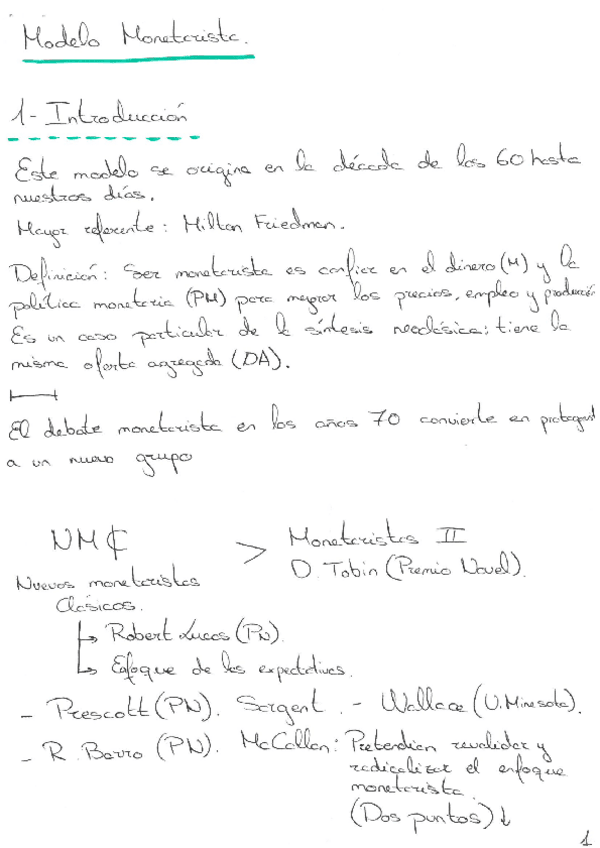 Modelo Monetarista.
1- Introducción
Este modelo se origina en la década de los 60 hasta
nuestros días.
Mayor referente: Milton Friedman.
Definición: Ser monetarista es confiar en el dinero (M) y la
política monetaria (PM) para mejorar los precios, empleo y producción
Es un caso particular de la síntesis neoclásica; tiene la
misma oferta agregada (DA).
El debate monetarista en los años 70 convierte en protagonist
a un nuevo grupo
NM₵ > Monetaristas II
D. Tobin (Premio Novel).
Nuevos monetaristas
Clásicos.
↳ Robert Lucas (PN).
↳ Enfoque de las expectativas.
- Prescott (PN). Sargent. - Wallace (U. Minesota).
- R. Barro (PN). McCallan: Pretendían revalidar y
radicalizar el enfoque
monetarista
(Dos puntos) ↓
1